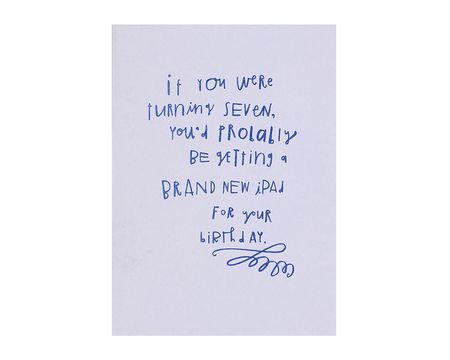 if you were
turning seven,
you'd prolably
be getting a
brand new ipad
for your
birthday.